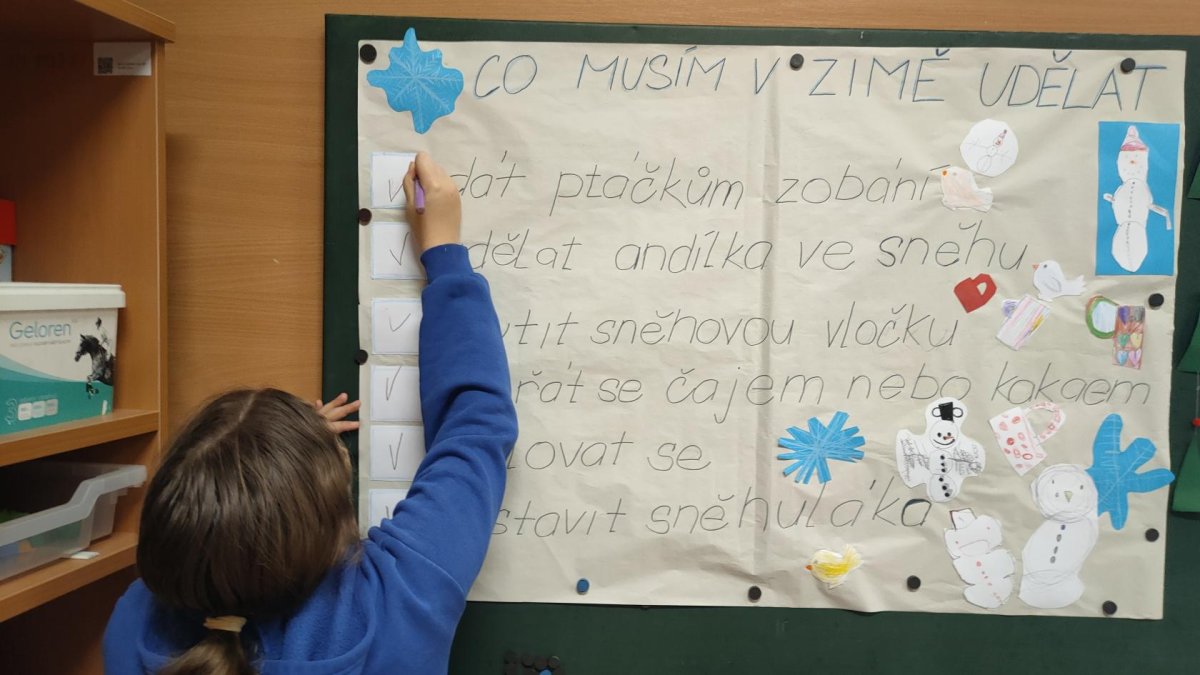 CO MUSÍM V ZIMĚ UDĚLAT
v dát ptáčkům zobání
v dělat andílka ve sněhu
v tit sněhovou vločku
v řát se čajem nebo kakaem
v lovat se
v stavit sněhuláka
Geloren